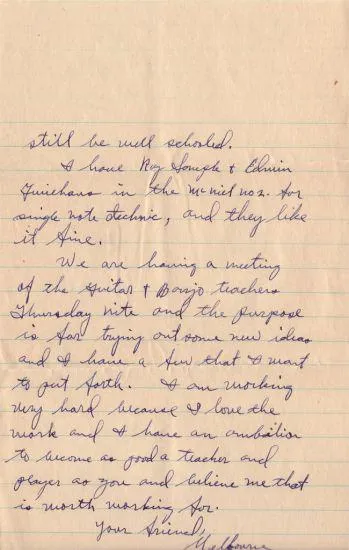 still be well schooled.
I have Roy Joseph + Edwin
in the McNiel no 2. for
single note technic, and they like
it fine.
We are having a meeting
of the guitar + Banjo teachers
Thursday nite and the purpose
is for trying out some new ideas
and I have a few that I want
to put forth. I am working
very hard because I love the
work and I have an ambition
to become as good a teacher and
player as you and believe me that
is worth working for.
Your friend,
Melbourne